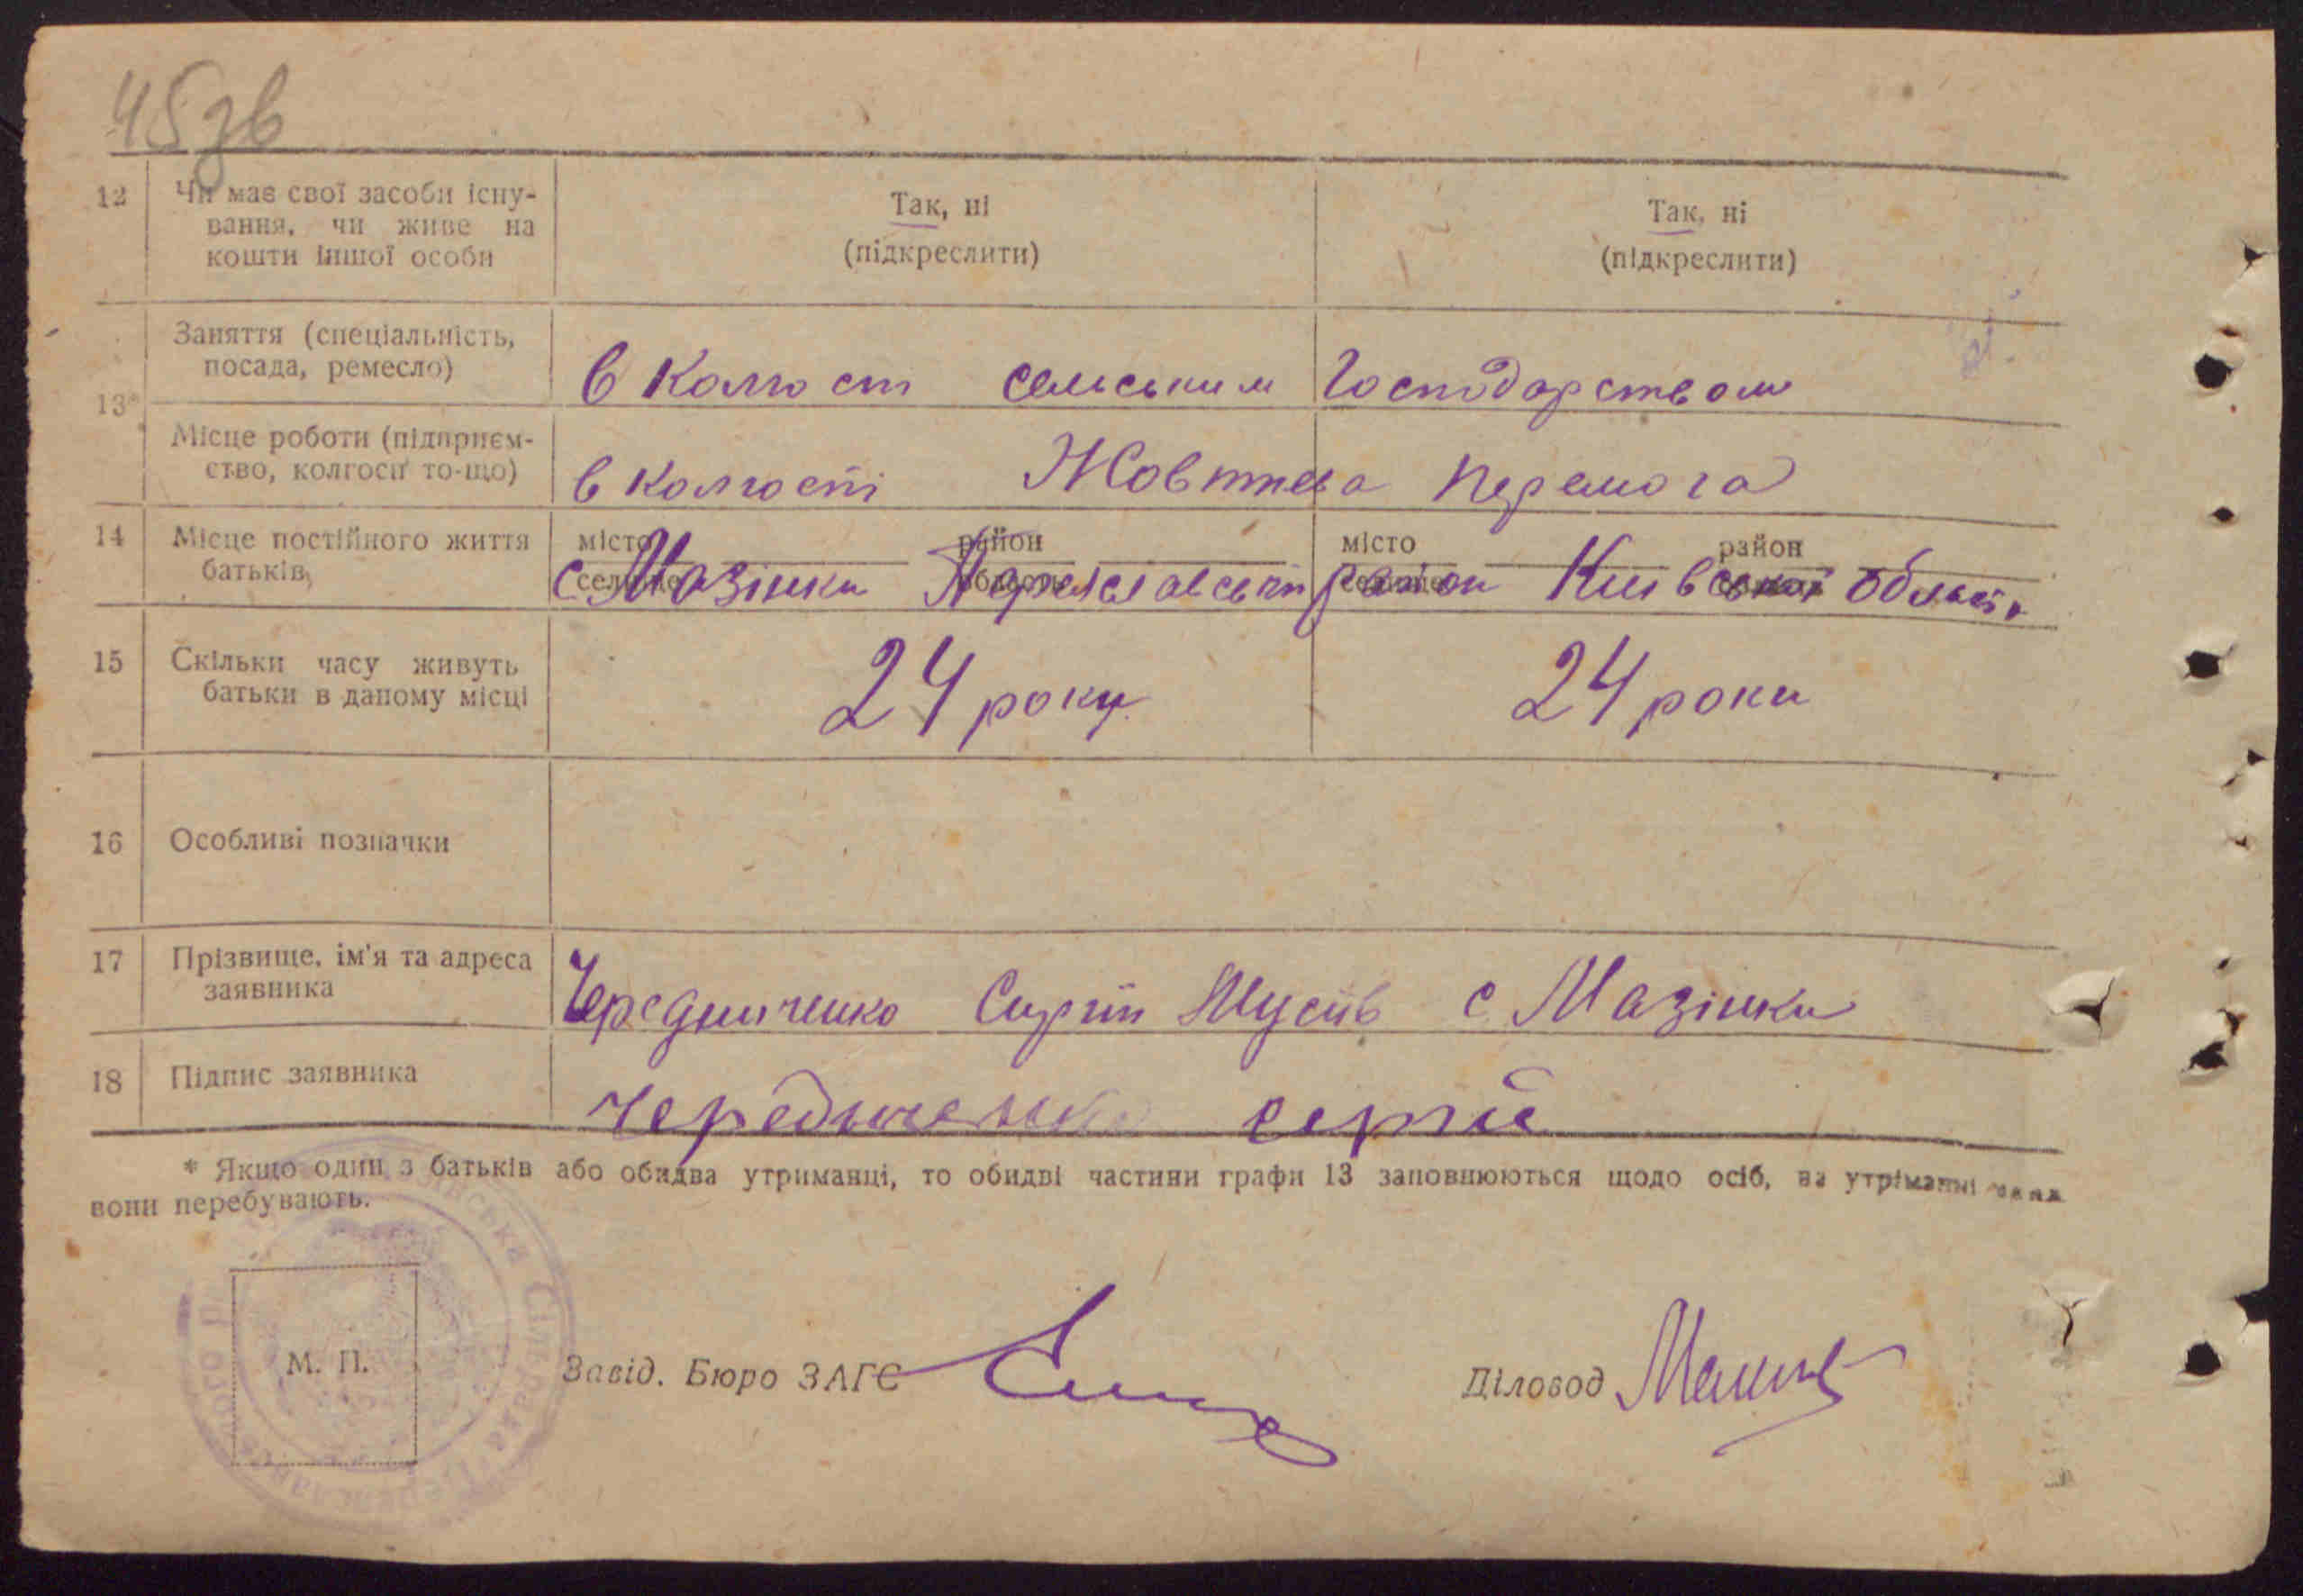 45 зв
12 Чи має свої засоби існу-
вання, чи живе на
кошти іншої особи
Так, ні
(підкреслити)
Так, ні
(підкреслити)
13*
Заняття (спеціальність,
посада, ремесло)
в колгосп сельским Господарством
Місце роботи (підприєм-
ство, колгосп то-що)
в колгоспі Жовтнева перемога
14 Місце постійного життя
батьків,
місто район
селище область
місто район
селище область
с. Мазінки Переяславський район Київської області
15 Скільки часу живуть
батьки в даному місці
24 року
24 роки
16 Особливі позначки
17 Прізвище, ім'я та адреса
заявника
Чередниченко Сиргій Мусіїв с Мазінки
18 Підпис заявника
Чередниченко сергій
* Якщо один з батьків або обидва утриманці, то обидві частини графи 13 заповнюються щодо осіб, на утріманні яких
вони перебувають.
М. П.
Завід. Бюро ЗАГС
Діловод